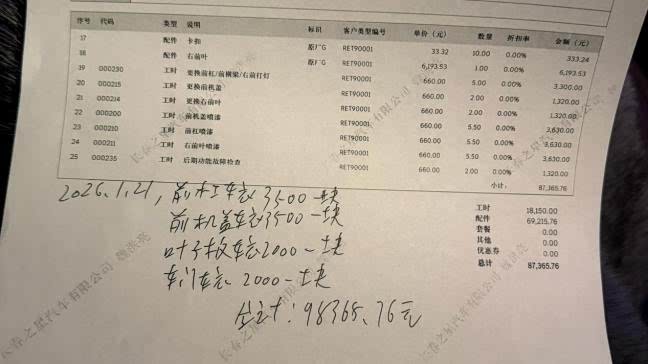 序号 代码 类型 说明 标识 客户类型编号 单价（元） 数量 折扣率 金额（元）
17 配件 卡扣 原厂G RET90001 33.32 10.00 0.00% 333.24
18 配件 右前叶 原厂G RET90001 6,193.53 1.00 0.00% 6,193.53
19 000230 工时 更换前杠/前横梁/右前灯灯 RET90001 660.00 5.00 0.00% 3,300.00
20 000215 工时 更换前机盖 RET90001 660.00 2.00 0.00% 1,320.00
21 000214 工时 更换右前叶 RET90001 660.00 2.00 0.00% 1,320.00
22 000200 工时 前机盖喷漆 RET90001 660.00 5.50 0.00% 3,630.00
23 000210 工时 前杠喷漆 RET90001 660.00 5.50 0.00% 3,630.00
24 000211 工时 右前叶喷漆 RET90001 660.00 5.50 0.00% 3,630.00
25 000235 工时 后期功能故障检查 RET90001 660.00 2.00 0.00% 1,320.00
小计： 87,365.76
工时 18,150.00
配件 69,215.76
套餐 0.00
其他 0.00
优惠券 0.00
总计 87,365.76
2026.1.21，前杠车衣3500一块
前机盖车衣3500一块
叶子板车衣2000一块
车门车衣2000一块
全计：98365.76元
长春之星汽车有限公司 魏洪亮